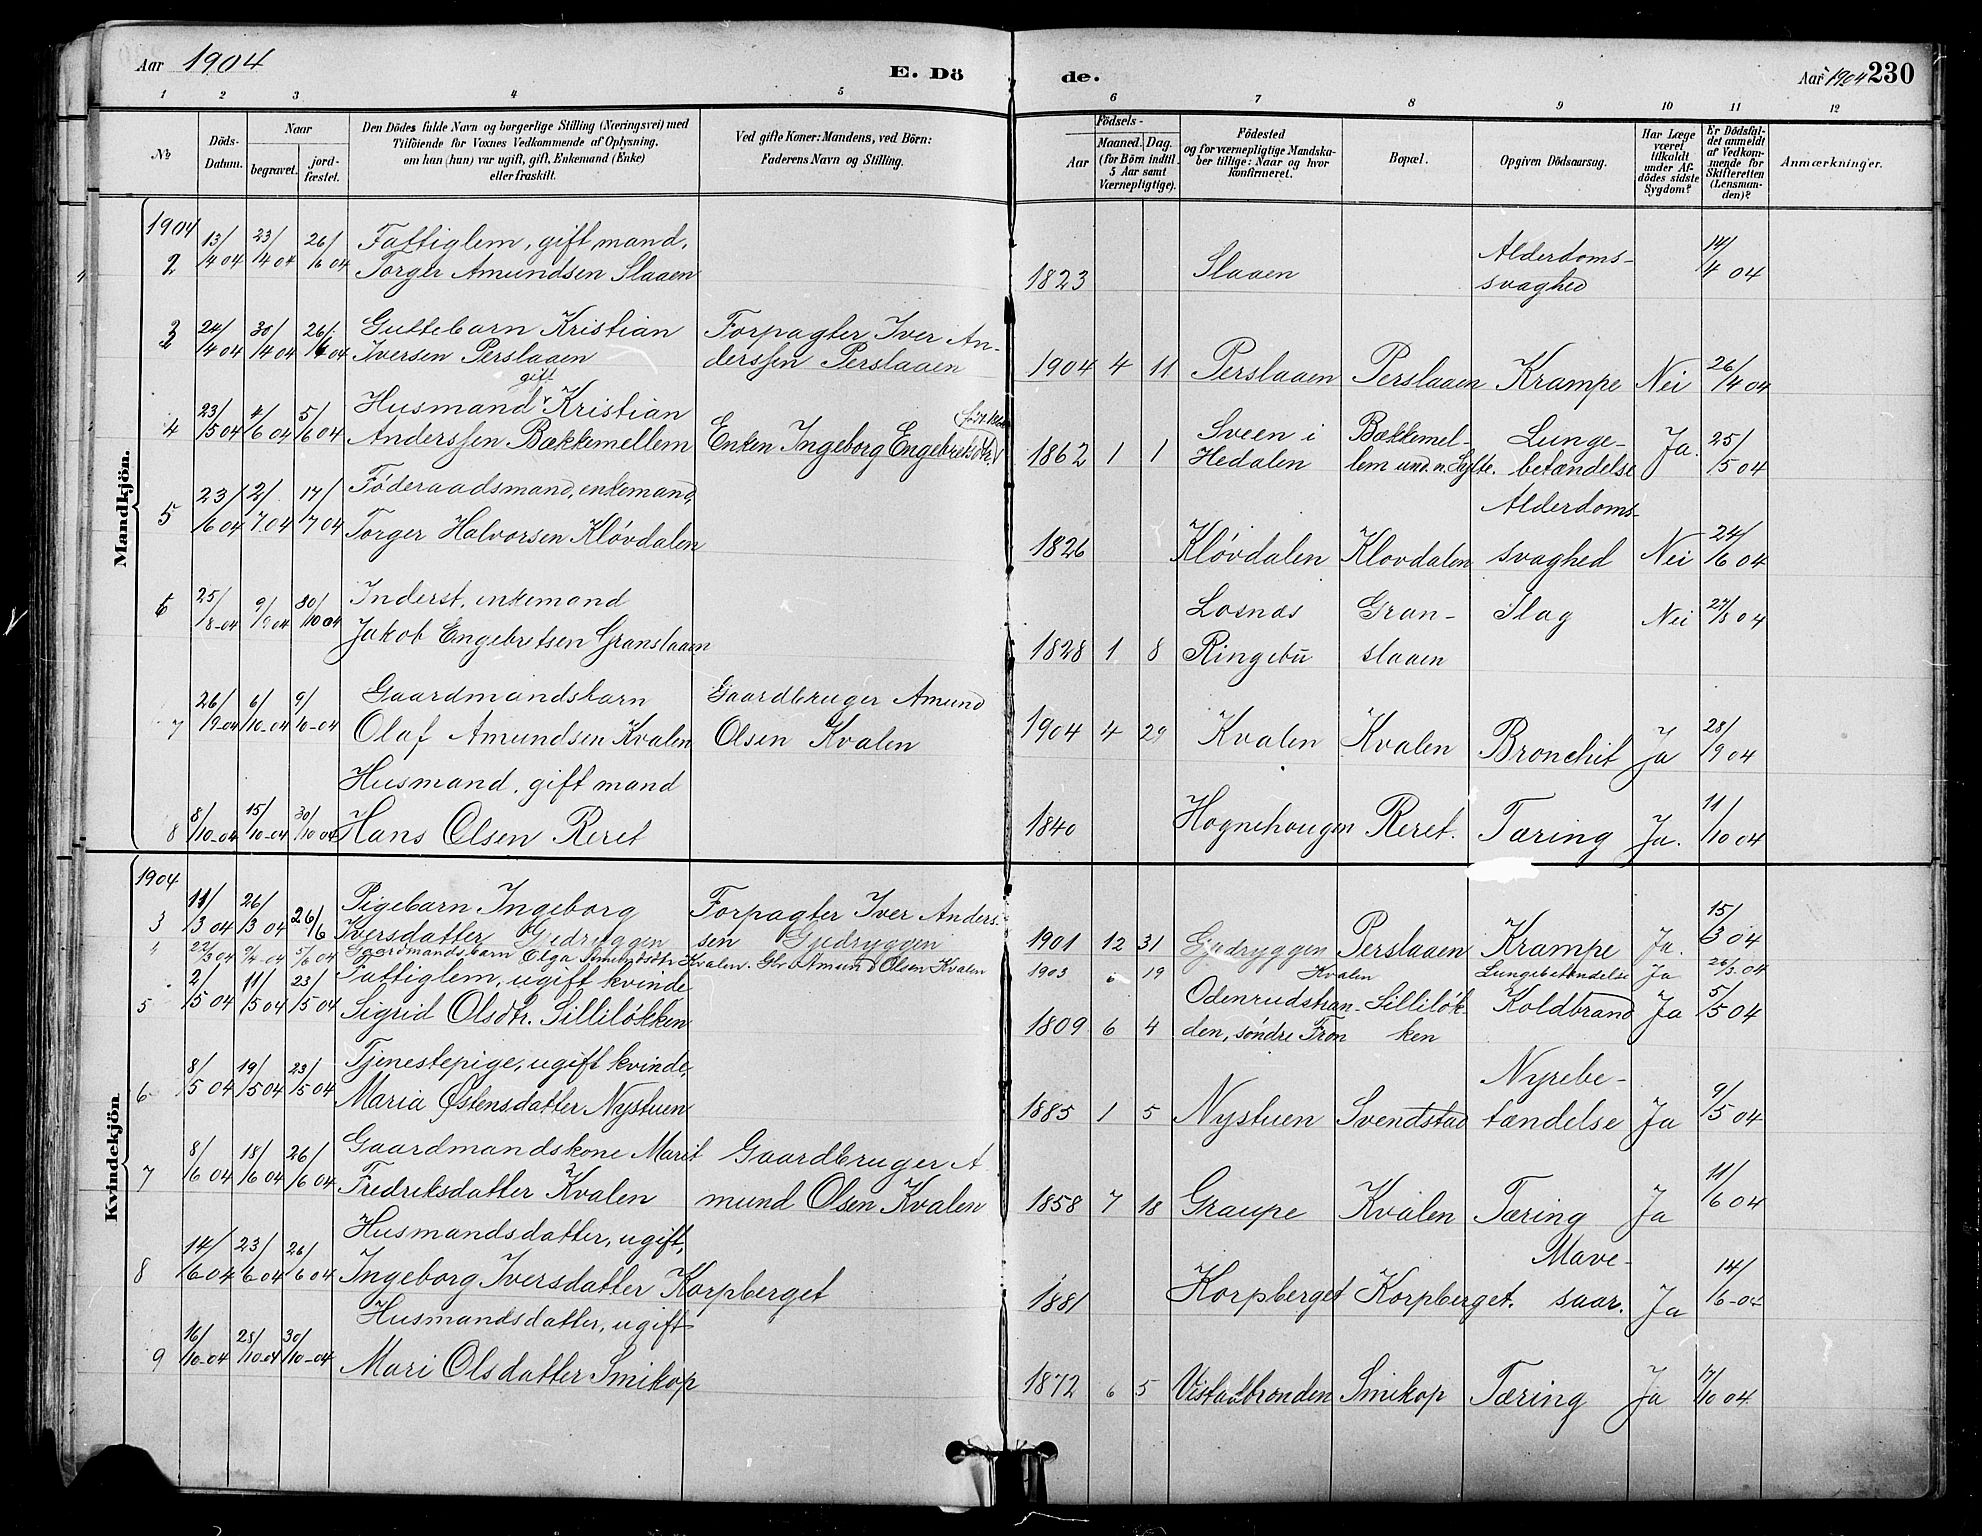 Aar 1904
E. Dö
de.
Aar 1904 230
1 2 3 4 5 6 7 8 9 10 11 12
№
Döds-
Datum.
Naar
begravet.
jord-
fæstet.
Den Dödes fulde Navn og borgerlige Stilling (Næringsvei) med
Tilföiende for Voxnes Vedkommende af Oplysning,
om han (hun) var ugift, gift, Enkemand (Enke)
eller fraskilt.
Ved gifte Koner: Mandens, ved Börn:
Faderens Navn og Stilling.
Födsels-
Aar
Maaned. Dag.
(for Börn indtil
5 Aar samt
Værnepligtige).
Födested
og for værnepligtige Mandska-
ber tillige: Naar og hvor
konfirmeret.
Bopæl.
Opgiven Dödsaarsag.
Har Læge
været
tilkaldt
under Af-
dödes sidste
Sygdom?
Er Dödsfal-
det anmeldt
af Vedkom-
mende for
Skifteretten
(Lensman-
den)?
Anmærkninger.
Mandkjön.
1904
2 13/4 04 23/4 04 26/6 04 Fattiglem, gift mand,
Torger Amundsen Slaaen
1823 Slaaen Alderdoms-
svaghed 14/4 04
3 24/4 04 30/4 04 26/6 04 Guttebarn Kristian
Iversen Perslaaen
Forpagter Iver An-
derssen Perslaaen
1904 4 11 Perslaaen Perslaaen Krampe Nei 26/4 04
gift
4 23/5 04 4/6 04 5/6 04 Husmand Kristian
Anderssen Bækkemellem
Enken Ingeborg Engebretsdtr.
1862 1 1 Sveen i
Hedalen
Bækkemel-
lem und. n. Sylte.
Lunge-
betændelse Ja. 25/5 04
5 23/6 04 2/7 04 17/7 04 Föderaadsmand, enkemand,
Torger Halvorsen Klövdalen
1826 Klövdalen Klovdalen Alderdoms-
svaghed Nei 24/6 04
6 25/8-04 9/9 04 30/10 04 Inderst, enkemand
Jakob Engebretsen Granslaaen
1828 1 8 Losnæs
Ringebu
Gran-
slaaen
Slag Nei 27/8 04
7 26/9-04 6/10-04 9/10-04 Gaardmandsbarn
Olaf Amundsen Kvalen
Gaardbruger Amund
Olsen Kvalen
1904 4 29 Kvalen Kvalen Bronchit Ja 28/9 04
8 8/10-04 15/10-04 30/10 04 Husmand, gift mand
Hans Olsen Reret
1840 Hognehougen Reret. Tæring Ja. 11/10 04
Kvindekjön
1904
3 11/3 04 26/3 04 26/6 Pigebarn Ingeborg
Iversdatter Gjedryggen
Forpagter Iver Anders-
sen Gjedryggen
1901 12 31 Gjedryggen Perslaaen Krampe Ja. 15/3 04
4 22/3 04 2/4-04 5/6 04 Gaardmandsbarn Olga Amundsdtr Kvalen. Gbr. Amund Olsen Kvalen
1903 6 19 Kvalen Lungebetændelse Ja 26/3.04
5 2/5 04 11/5 04 23/5 04 Fattiglem, ugift kvinde
Sigrid Olsdtr. Sillilökken
1809 6 4 Odenrudstran-
den, söndre Fron
Sillilök-
ken
Koldbrand Ja 5/5 04
6 8/5 04 19/5 04 23/5 04 Tjenestepige, ugift kvinde,
Maria Østensdatter Nystuen
1885 1 5 Nystuen Svendstad Nyrebe-
tændelse Ja 9/5 04
7 8/6 04 18/6 04 26/6 04 Gaardmandskone Marit
Fredriksdatter Kvalen
Gaardbruger A
mund Olsen Kvalen
1858 7 18 Graupe Kvalen Tæring Ja 11/6 04
8 14/6 04 23/6 04 26/6 04 Husmandsdatter, ugift,
Ingeborg Iversdatter Korpberget
1881 Korpberget Korpberget. Mave-
saar. Ja 14/6-04
9 16/10-04 25/10-04 30/10-04 Husmandsdatter, ugift
Mari Olsdatter Smikop
1872 6 5 Vistadbrenden Smikop Tæring Ja 17/10 04